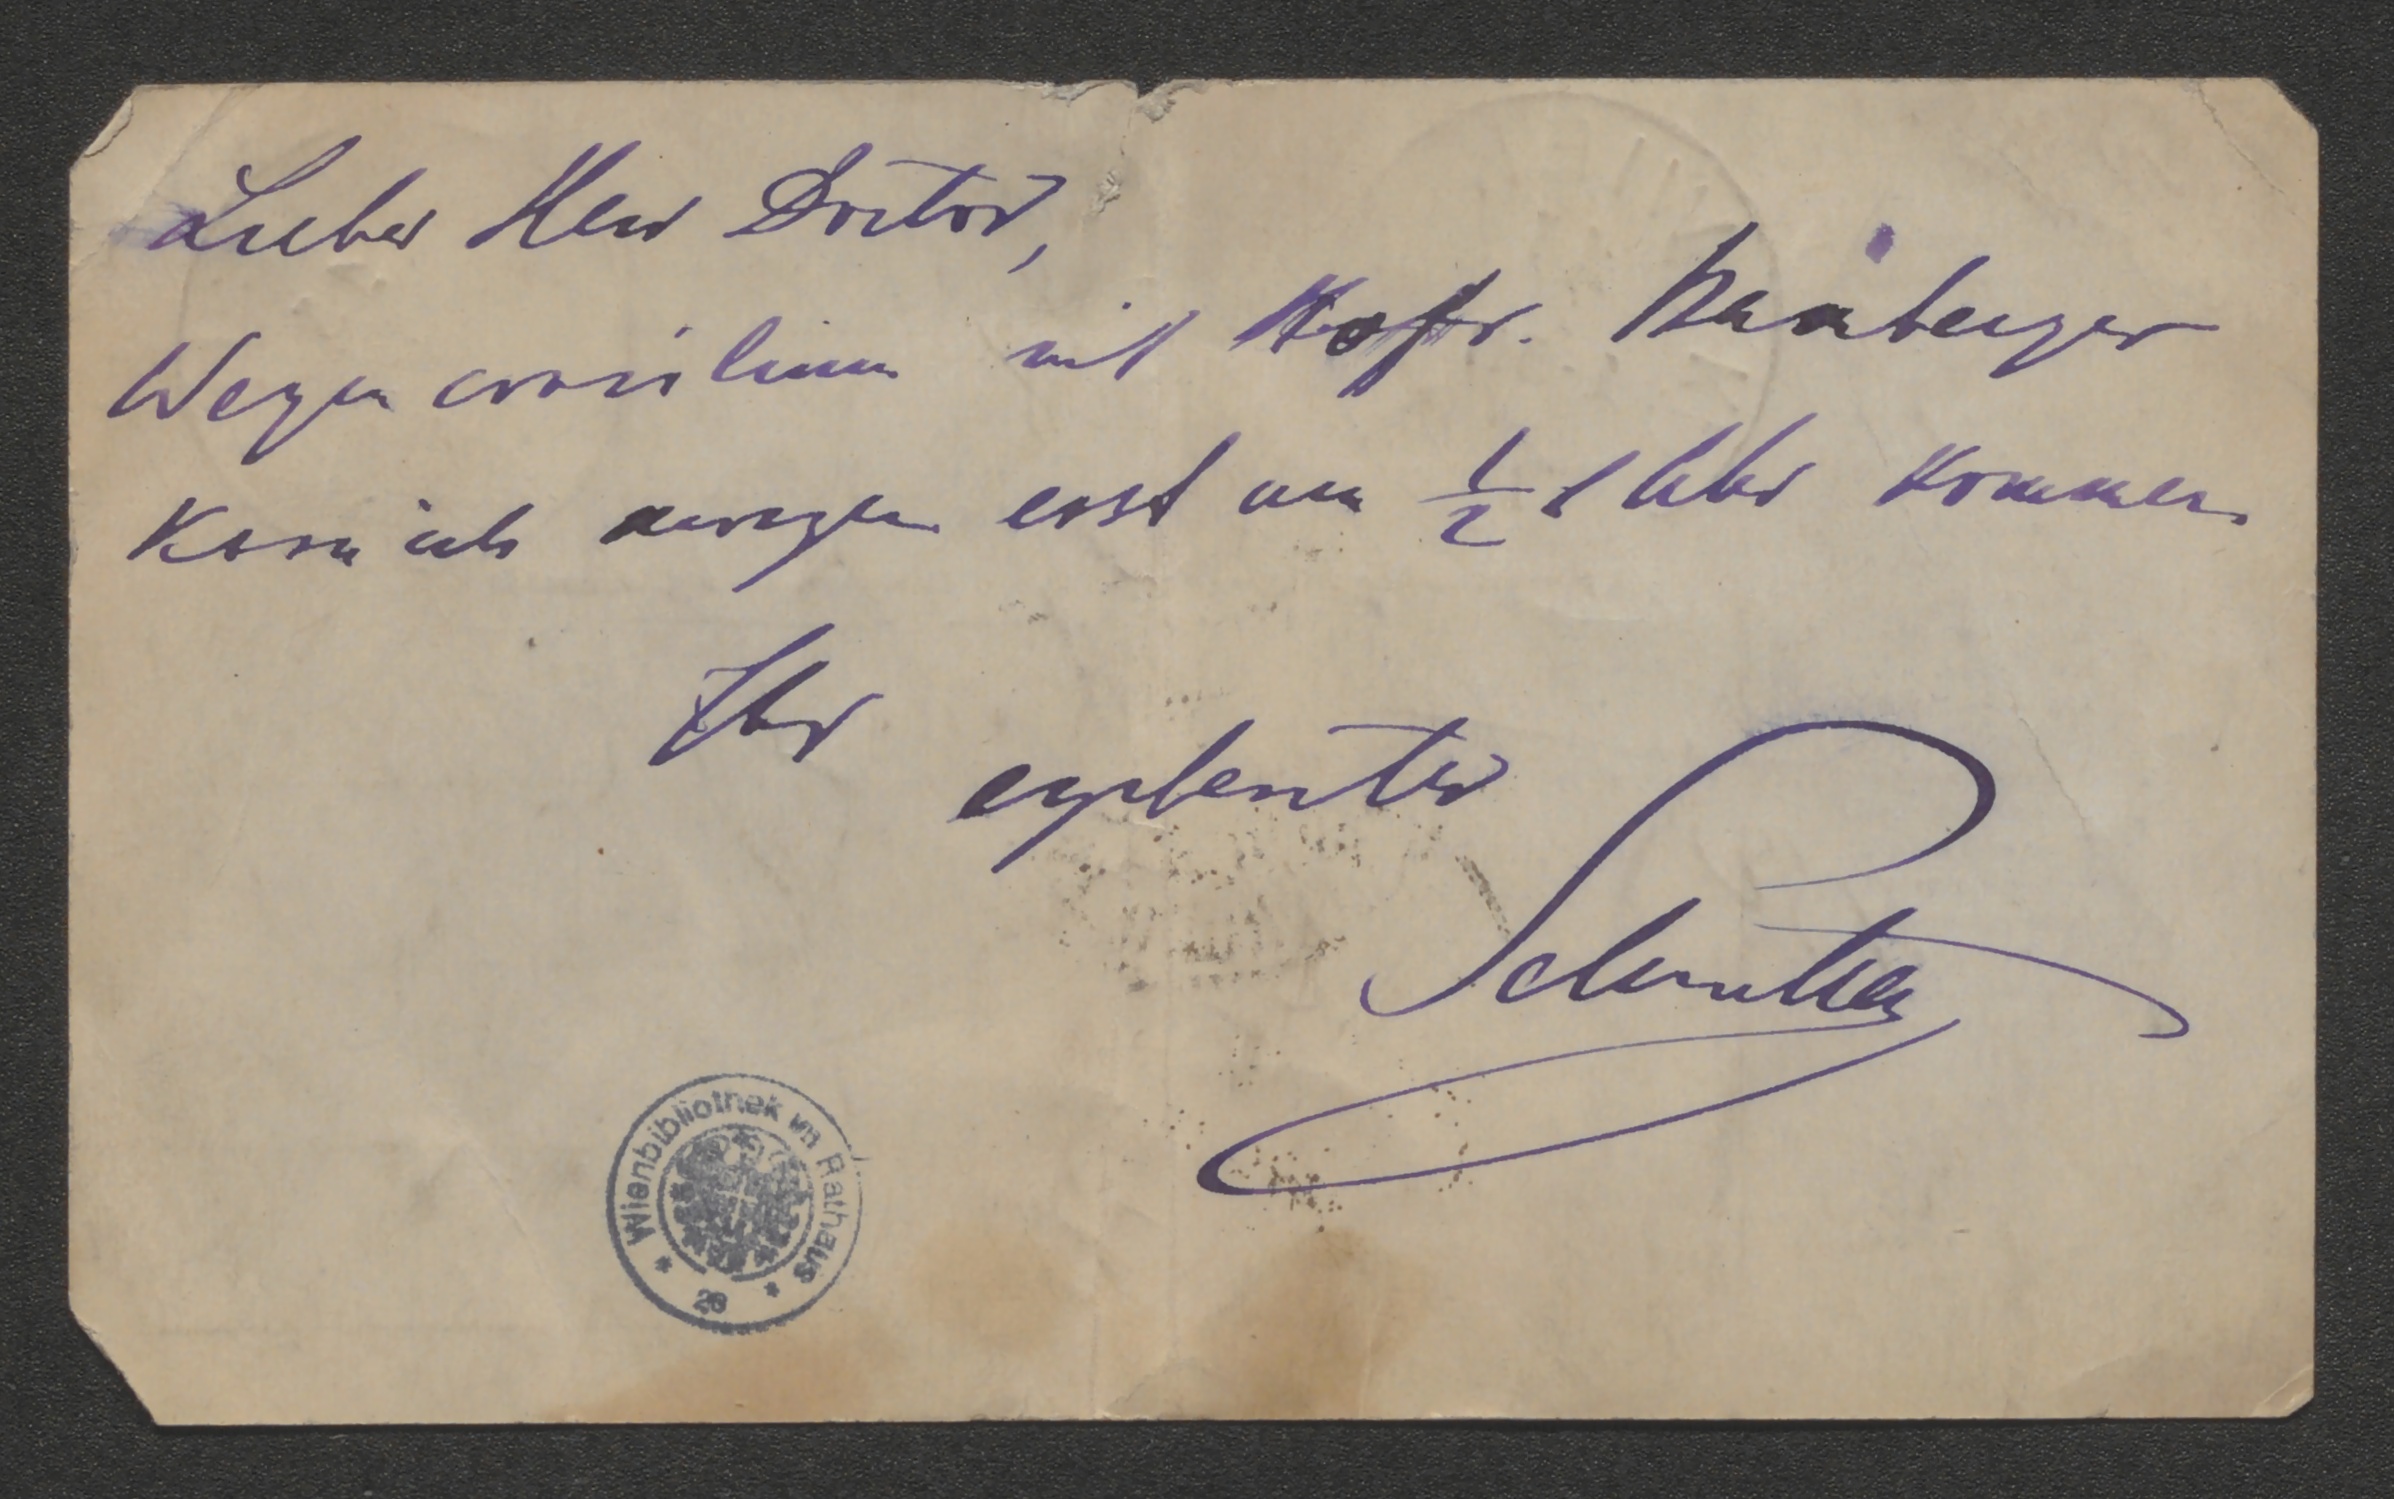 Lieber Herr Doctor,
Wegen consilium mit Hofr. Bamberger
kann ich morgen erst um ½1 Uhr kommen.
Ihr
ergebenster
Schnitzler
Wienbibliothek im Rathaus
* 26 *